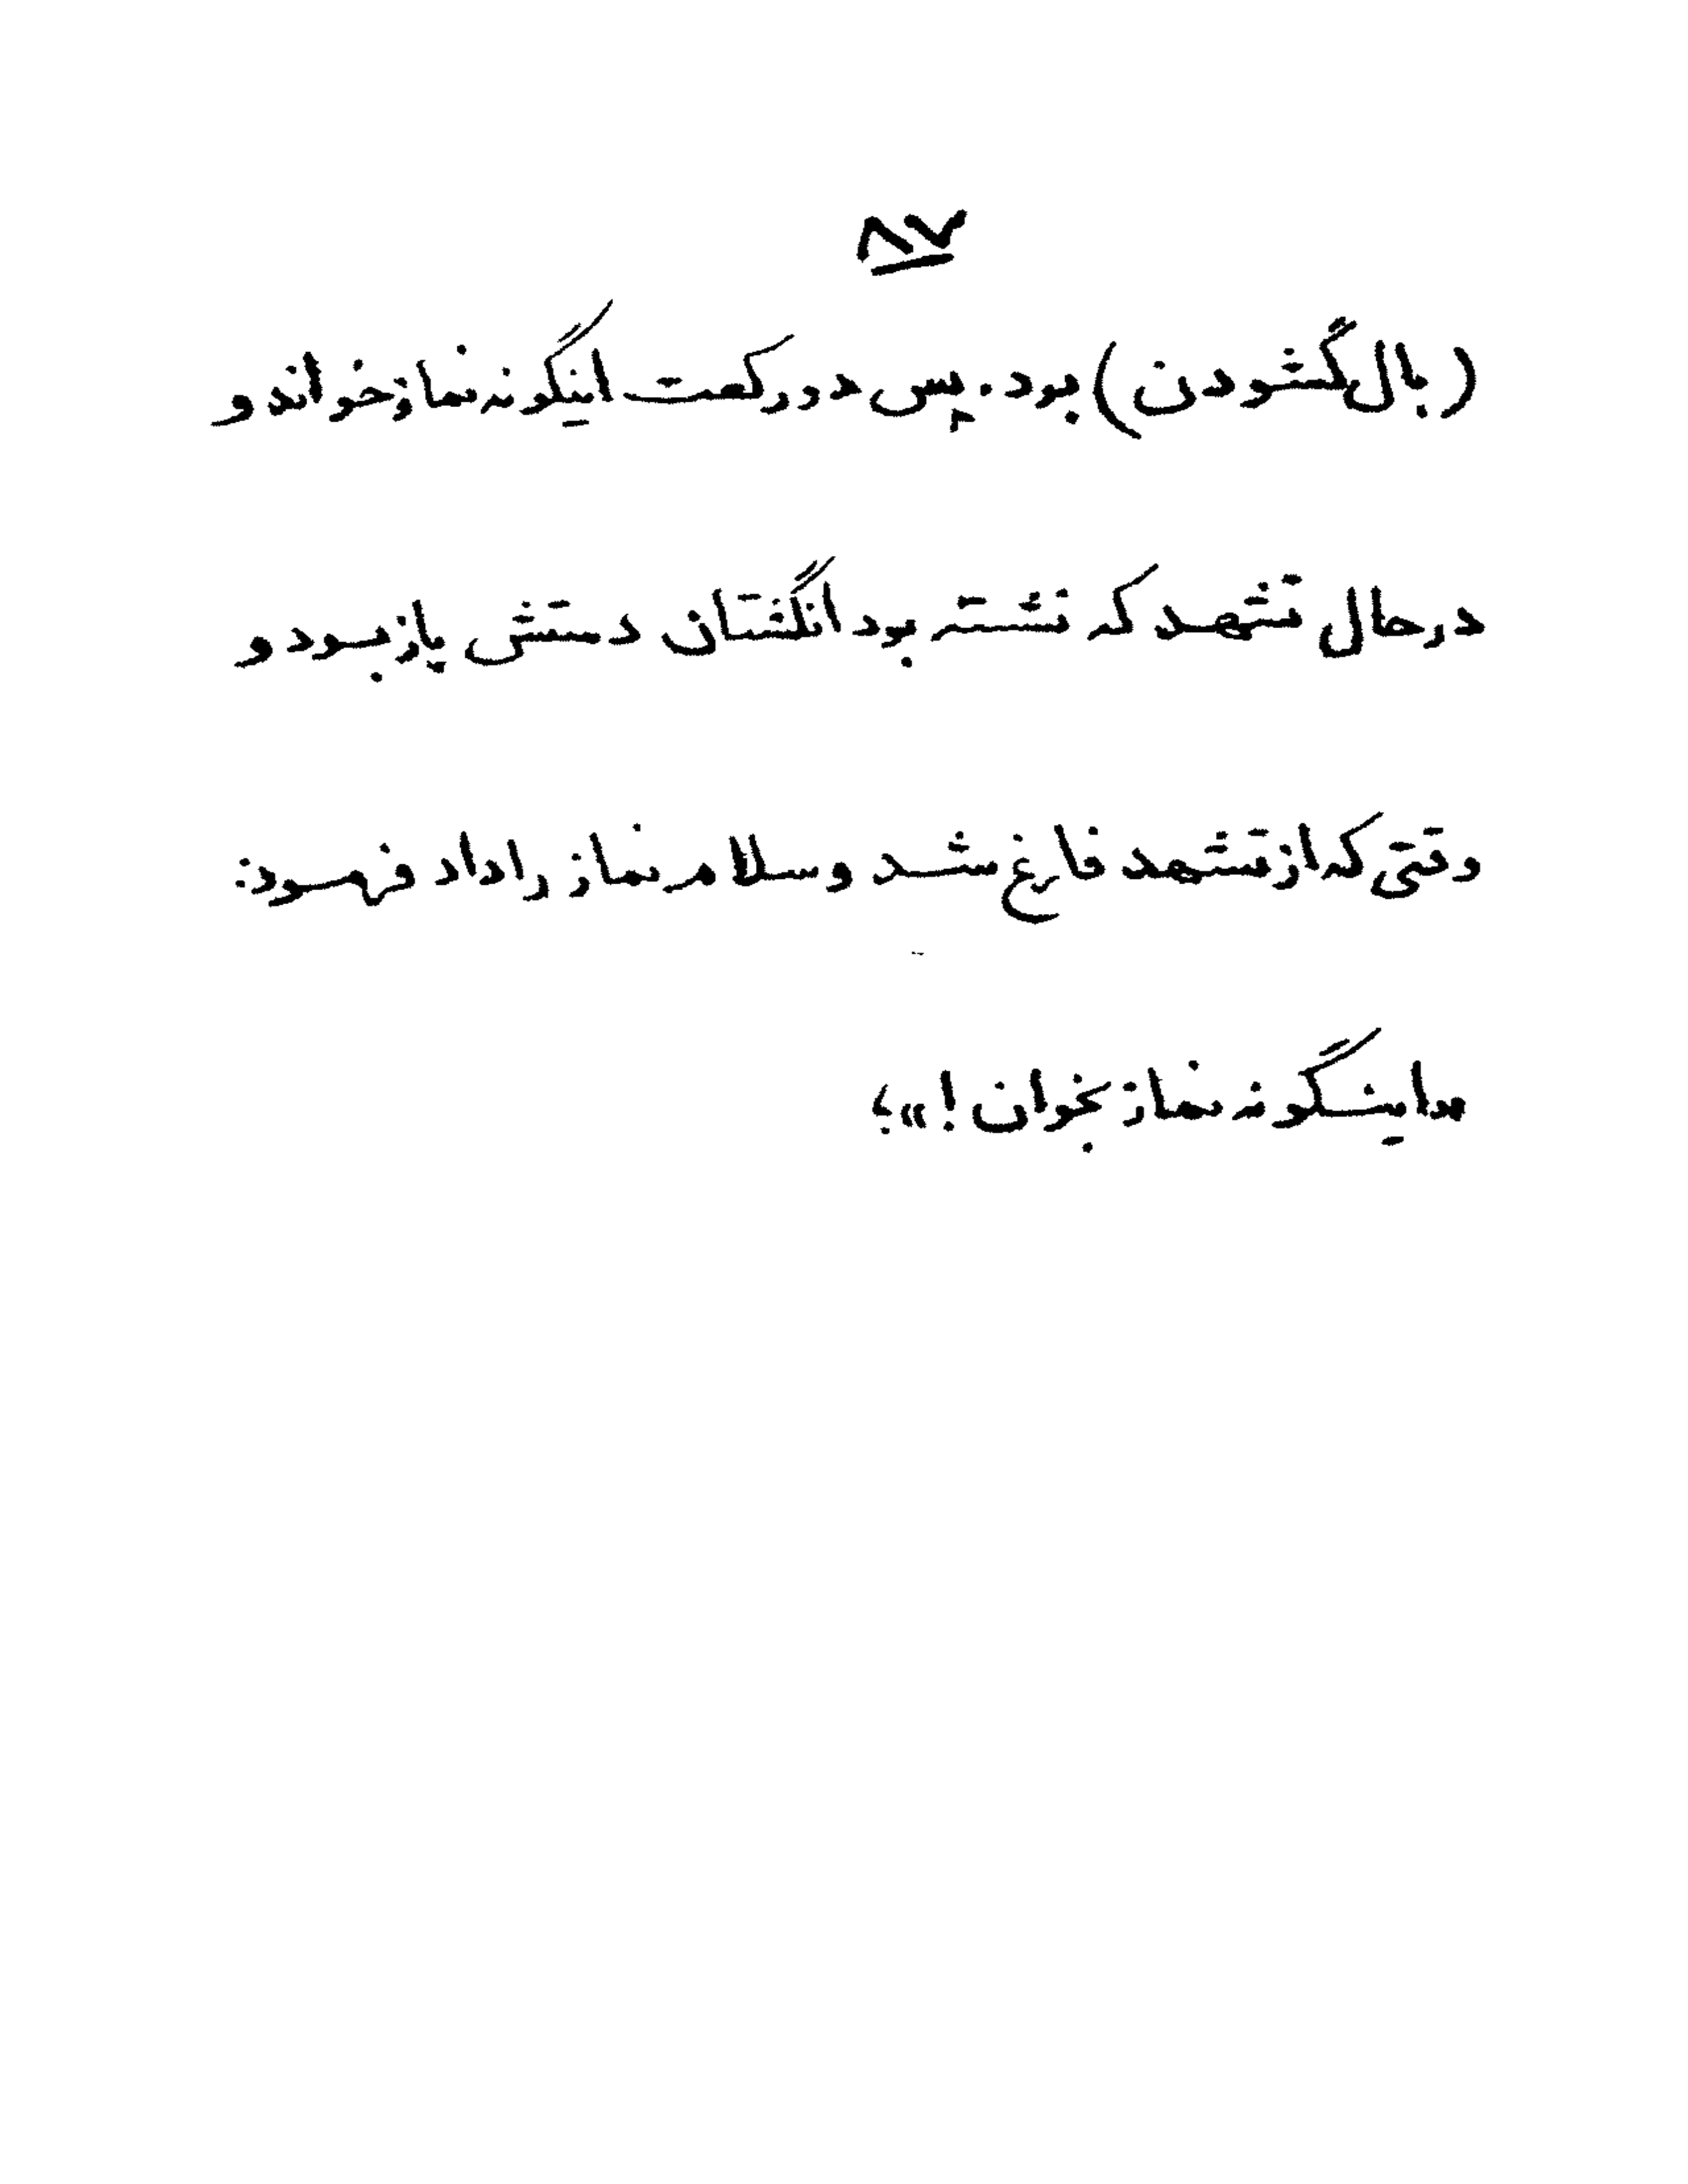 ۸۷
(بال گشودن) بود. پس دو رکعت اینگونه نماز خواند و
در حال تشهد که نشسته بود انگشتان دستش باز بود و
وقتی که از تشهد فارغ شد و سلام نماز را داد فرمود:
«اینگونه نماز بخوان!»؛